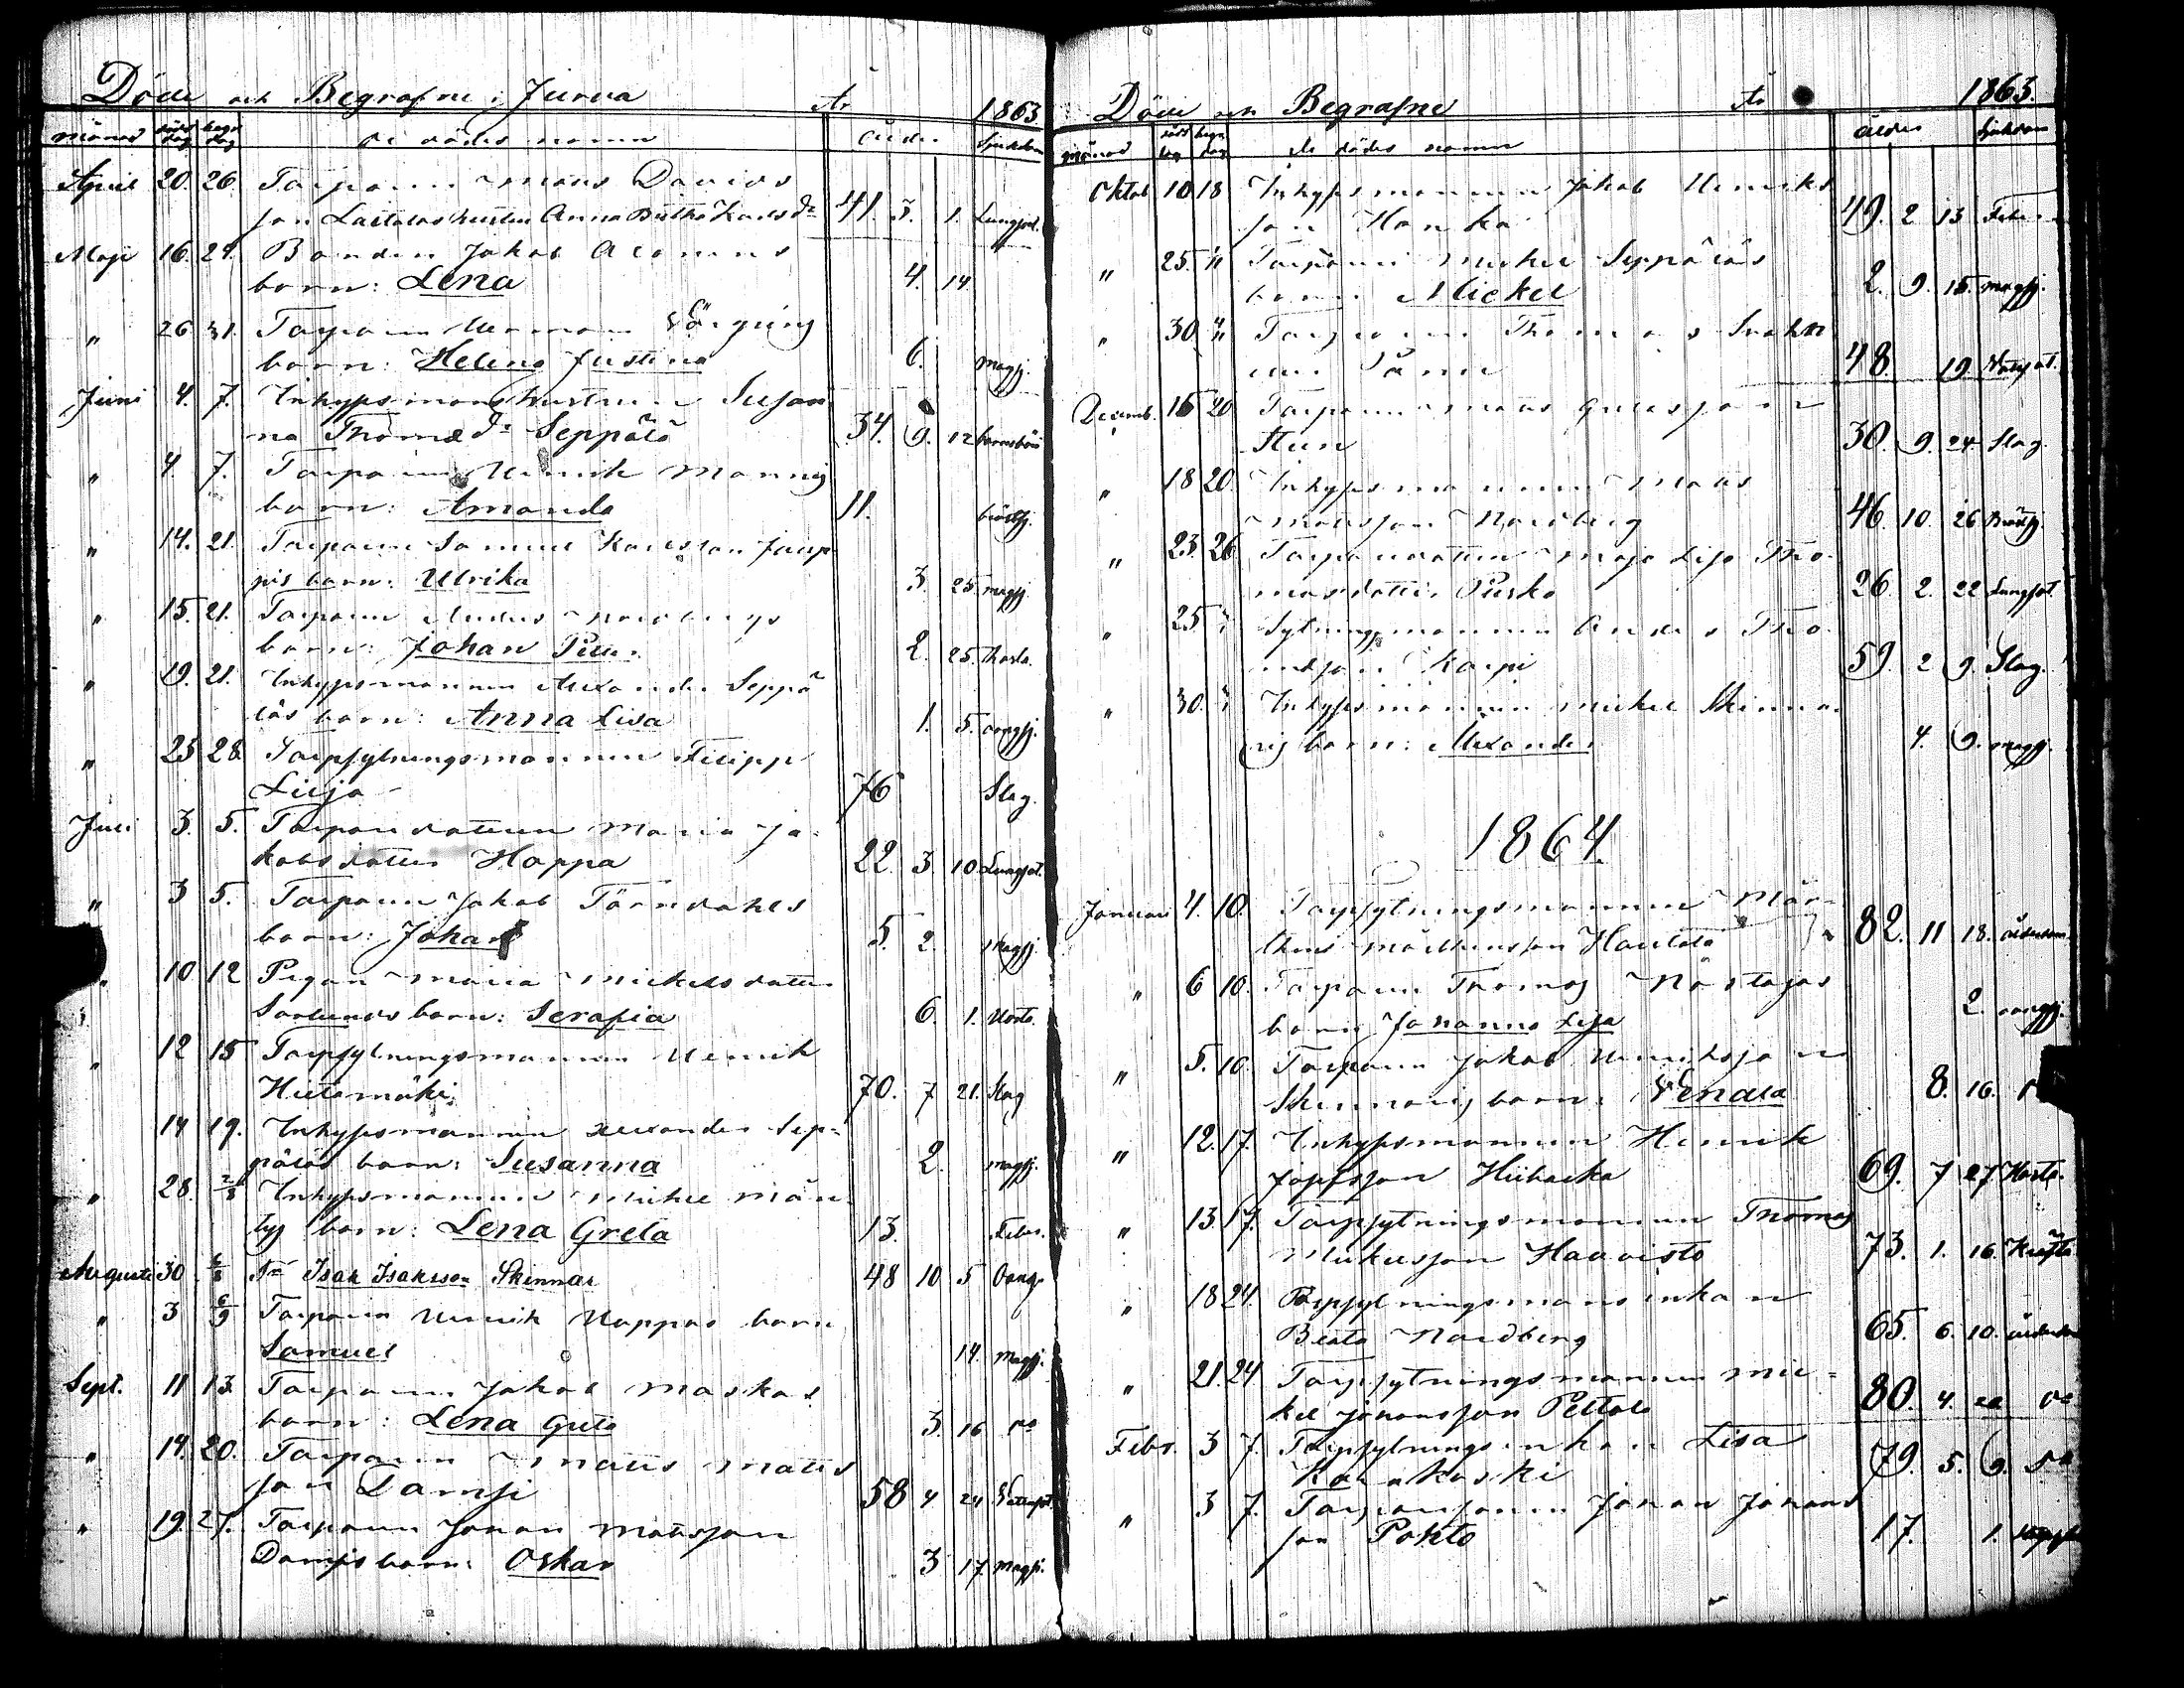 Döde och Begrafne i Jurva År 1863
månad död dag begr dag de dödes namn ålder Sjukdom
April 20. 26. Torparen Matts Davids
son Laitalas hustru Anna Britha Karlsdr 41. 3. 1. Lungsot.
Maji 16. 24. Bonden Jakob
barn: Lena 4. 14.
" 26 31. Torparen Herman
barn: Helena Justina 6. magsj.
Juni 4. 7. Inhysesmans hustrun Susan
na Thomædr Seppälä 34. 9. 12 barnsbörd
" 4. 7. Torparen Henrik Mannis
barn: Amanda 11. bröstsj.
" 14. 21. Torparen Samuel Karlsson Jaup
pis barn: Ulrika 3. 25. magsj.
" 15. 21. Torparen Anders Nordbergs
barn: Johan Petter 2. 25. Hosta.
" 19. 21. Inhysesmannen Alexander Seppä
läs barn: Anna Lisa 1. 5. magsj.
" 25 28. Torpsytningsmannen Filipp
Lilja 76 Slag.
Juli 3. 5. Torparedottren Maria Ja-
kobsdotter Hoppa 22. 3 10 Lungsot.
" 3 5. Torparen Jakob Törndahls
barn: Johan 5. 2. Magsj.
" 10 12 Pigan Maria Mickelsdotter
barn: Serafia 6. 1. Hosta.
" 12 15 Torpsytningsmannen Henrik
Hietamäki 70. 7 21. Slag
14 19. Inhysesmannen Alexander Sep-
päläs barn: Susanna 2. magsj.
" 28. 2/8 Inhysesmannen Mickel Män
tys barn: Lena Greta 13. Feber.
Augusti 30 Isak Isaksson Skinnar 48 10 5
" 3 6/9 Torparen Henrik Hoppas barn
Samuel 14. Magsj.
Sept. 11 13. Torparen Jakob Maskas
barn: Lena Greta 3. 16 do
" 14. 20. Torparen Matts Matts
son Lampi 58 4 24 Vattusot.
" 19. 27. Torparen Johan Mattsson
barn: Oskar 3 17. Magsj.
Döde och Begrafne År 1863.
månad död dag begr dag de dödes namn ålder Sjukdom
Oktob. 10 18 Inhysesmannen Jakob Henriks
son Hanka 49. 2 13 Feber
" 25. " Torparen Mickel Seppäläs
barn: Mickel 2. 9. 15. magsj.
" 30 " Torparen Thomas
48. 19.
Decemb. 15 20 Torparen Matts Gustafsson
Sten 30. 9. 24. Slag.
" 18 20. Inhysesmannen Matts
Mattsson Nordberg 46. 10. 26 Bröstsj.
" 23. 26 Torparedottren Maja Lisa Tho-
masdotter Pisko 26. 2. 22 Lungsot.
" 25 " Sytningsmannen Anders Tho
masson Karpi 59. 2 9. Slag.
" 30. " Inhysesmannen Mickel Skinna
ris barn: Alexander 4. 9. magsj.
1864.
Januari 4. 10. Torpsytningsmannen Mår-
thens Mårthensson Hautala 82. 11 18. ålderdom.
" 6 10. Torparen Thomas
barn Johanna Lisa 2. magsj.
" 5. 10. Torparen Jakob Henriksson
Skinnaris barn: Vendla 8. 16.
" 12. 17. Inhysesmannen Henrik
Josefsson Hiibacka 69. 7 27 Hosta.
" 13. 17. Torpsytningsmannen Thomas
Mickelsson Haavisto 73. 1. 16. Kräfta
" 18 24. Torpsytningsmansenkan
Beata Nordberg 65. 6. 10. ålderdom
" 21. 24 Torpsytningsmannen Mic-
kel Johansson Peltola 80. 4. 22 do
Febr. 3 7. Torpsytningsenkan Lisa
Kalakoski 79. 5. 9. do
" 3 7. Torparesonen Johan Johans
son Pohto 17. 1.